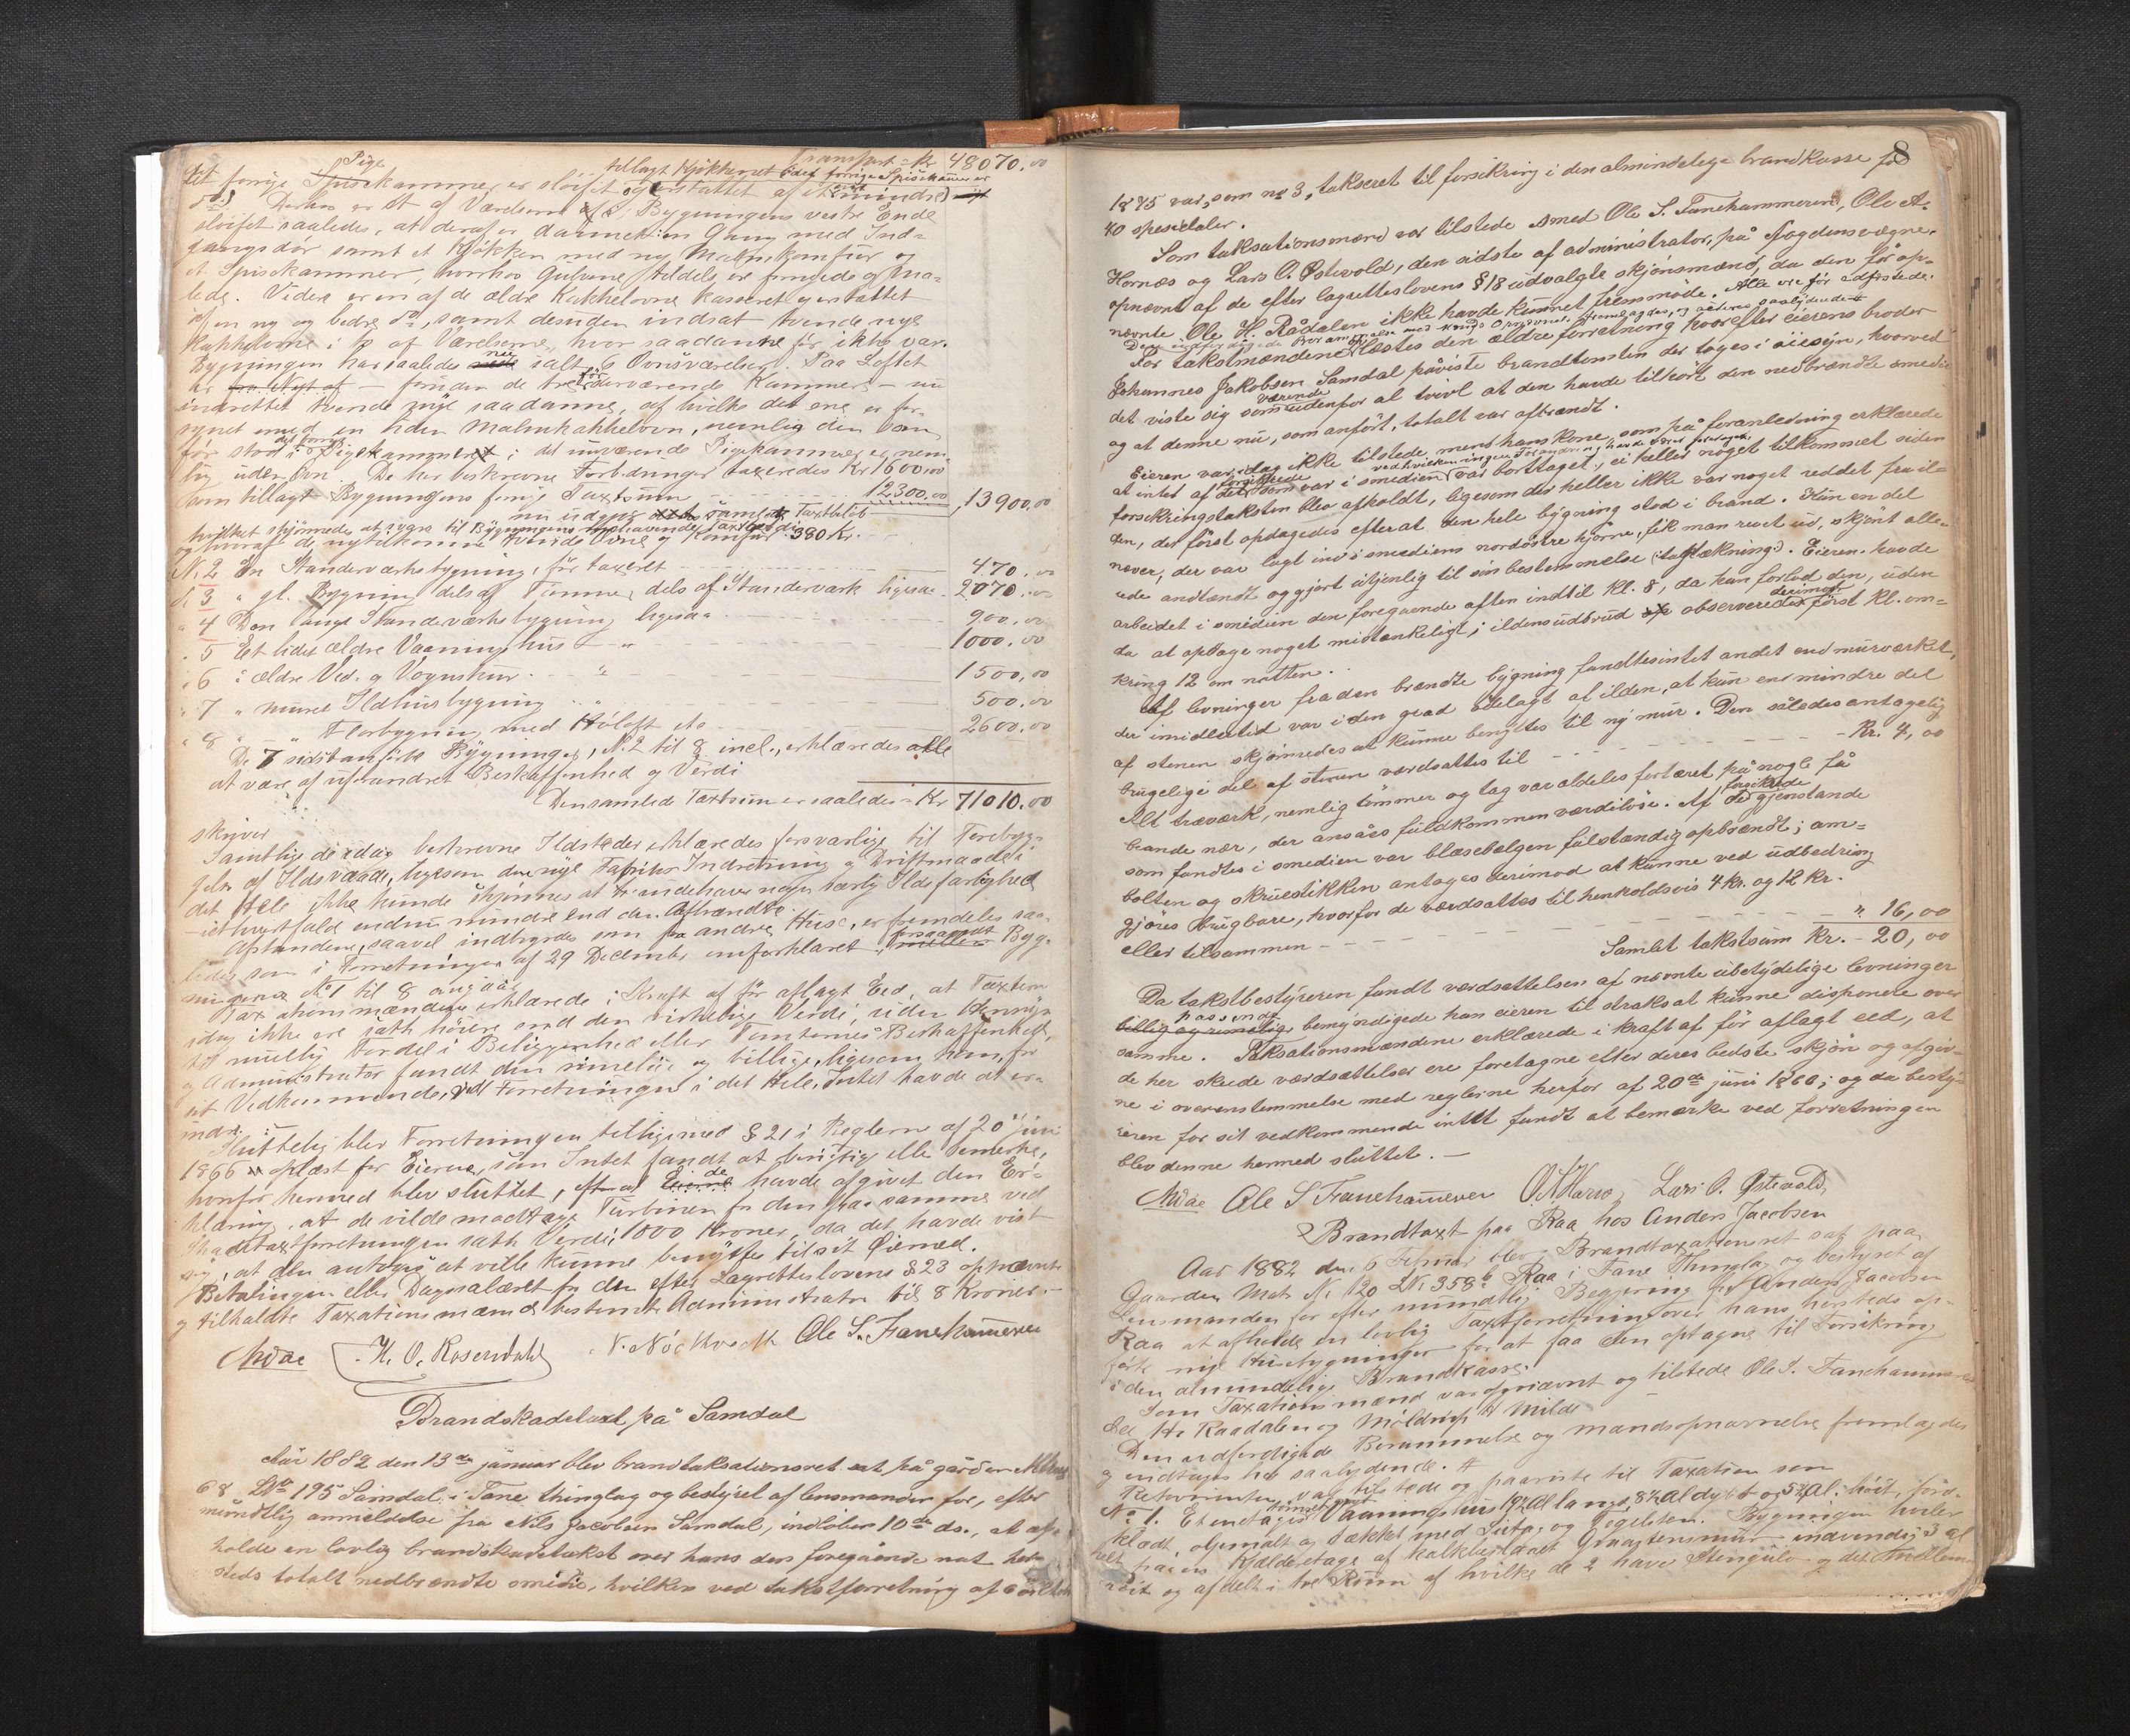 Transport Kr. 48070.00
Pige tillagt Kjøkkenet det forrige Spisekammer er
det forrige Spisekammer er sløifet og erstattet af et mindre
do. Derhos er et af Værelserne i Bygningens vestre Ende
sløifet saaledes, at deraf er dannet en Gang med Ind-
gangsdør samt et Kjøkken med ny Malm komfur og
et Spisekammer, hvorhos Gulvene tildels er fornyede og ma-
lede. Videre er en af de ældre Kakkelovne kasseret og erstattet
af en ny og bedre do, samt desuden indsat tvende nye
Kakkelovne i 2 af Værelserne, hvor saadanne før ikke var.
Bygningen har saaledes nu ialt 6 Ovnsværelser. Paa Loftet
er foruden de tre før derværende Kammer nu
indrettet tvende nye saadanne, af hvilke det ene er for-
synet med en liden Malmkakkelovn, nemlig den som
før stod i det forrige Pigekammer; det nuværende Pigekammer er nem-
lig uden Ovn. De her beskrevne Forbedringer taxeredes Kr 1600.00
som tillagt Bygningens forrige Taxtsum 12300.00 13900.00
nu udgjør samlet Taxtbeløb
hvilket skjønnedes at svare til Bygningens nuhavende Taxtværdi
og hvoraf de nytilkomne tvende Ovne og Komfur 380 Kr.
N. 2 En Standerværksbygning, før taxeret 470.00
" 3 " gl. Bygning dels af Tømmer, dels af Standerværk ligesaa 2070.00
" 4 Den lange Standerværksbygning ligesaa 900.00
" 5 Et lidet ældre Vaaningshus " 1000.00
" 6 " ældre Ved- og Vognskur " 1500.00
" 7 " muret Ildhusbygning " 500.00
" 8 " " Flørbygning med Høloft etc 2600.00
De 7 sidstanførte Bygninger, N. 2 til 8 incl., erklæredes alle
at være af uforandret Beskaffenhed og Værdi
Den samlede Taxtsum er saaledes Kr 71010.00
skriver
Samtlige de idag beskrevne Ildsteder erklæredes forsvarlige til Forebyg-
gelse af Ildsvaade, ligesom den nye Fabriks Indretning og Driftmaade i
det Hele ikke kunde skjønnes at indehave nogen særlig Ildsfarlighed
— iethvertfald endnu mindre end den Afbrændte.
Afstandene, saavel indbyrdes som fra andre Huse, er fremdeles saa-
ledes som i Forretningen af 29 December omforklaret forsaavidt Byg-
ningerne N. 1 til 8 angaar
Taxationsmændene erklærede i Kraft af før aflagt Eed, at Taxterne
idag ikke ere satte høiere end den virkelige Værdi, uden Hensyn
til mulig Fordel i Beliggenhed eller Tomternes Beskaffenhed,
og Administrator fandt den rimelig og billige, ligesom han, for
sit Vedkommende, ved Forretningen i det Hele Intet havde at er-
indre.
Sluttelig blev Forretningen tilligemed § 21 i Reglerne af 20 Juni
1866 oplæst for Eierne, som Intet fandt at berigtige eller bemerke,
hvorfor hermed blev sluttet, efter at de havde afgivet den Er-
klæring, at de vilde modtage Turbinen for den paa samme ved
Skadetaxtforretningen satte Værdi, 1000 Kroner, da det havde vist
sig, at den antages at ville kunne benyttes til sit Øiemed.
Betalingen eller Dagssalæret for den efter Lagretteslovens § 23 opnævnte
og tilkaldte Taxationsmænd bestemte Administrator til 8 Kroner.—
Mdae H. O. Rosendahl N. Nødtvedt Ole S. Fanehammeren
Brandskadetaxt på Samdal
Aar 1882 den 13de januar blev brandtaksationsret sat på gården
68 LNo 195 Samdal i Fane thinglag og bestyret af lensmanden for, efter
mundtlig anmeldelse fra Nils Jacobsen Samdal, indløben 10de ds., at af-
holde en lovlig brandskadetakst over hans den foregående nat her-
steds totalt nedbrændte smedie, hvilken ved takstforretning af 6
8
1875 var, som no 3, takseret til forsikring i den almindelige brandkasse for
40 spesidaler.
Som taksationsmænd var tilstede Ole S. Fanehammeren, Ole A.
Hornæs og Lars O. Østevold, den sidste af administrator, på fogdens vegne,
opnævnt af de efter lagretteslovens § 18 udvalgte skjønsmænd, da den før op-
nævnte Ole H. Rådalen ikke havde kunnet fremmøde. Alle ere før edfæstede.
Den udfærdigede Berammelse med Fogds Opnævnelse fremlagdes, og saalydende #
For takstmændene læstes den ældre forretning hvorefter eierens broder
Johannes Jakobsen Samdal påviste brandtomten der toges i øiesyn, hvorved
det viste sig som værende udenfor al tvivl at den havde tilhørt den nedbrændte smedie
og at denne nu, som anført, totalt var afbrændt.
Eieren var idag ikke tilstede, men hans kone, som på foranledning erklærede
ved hvilken ingen Forandring havde været foretaget
at intet af det forsikrede som var i smedien var borttaget, ei heller noget tilkommet siden
forsikringstaksten blev afholdt, ligesom der heller ikke var noget reddet fra il-
den, der først opdagedes efterat den hele bygning stod i brand. Kun en del
næver, der var lagt ind i smediens nordøstre hjørne, fik man revet ud, skjønt alle-
rede antændt og gjort utjenlig til sin bestemmelse (: tagtækning :). Eieren havde
arbeidet i smedien den foregaende aften indtil kl. 8, da han forlod den, uden
da at opdage noget mistænkeligt; ildens udbrud observeredes derimod først kl. om-
kring 12 om natten.
Af levninger fra den brændte bygning fandtes intet andet end murværket,
der imidlertid var i den grad ødelagt af ilden, at kun en mindre del
af stenen skjønnedes at kunne benyttes til ny mur. Den således antagelig
brugelige del af stenen værdsattes til Kr. 4,00
Alt træværk, nemlig tømmer og tag var aldeles fortæret på nogle få
brande nær, der ansåes fuldkommen værdiløse. Af de forsikrede gjenstande
som fandtes i smedien var blæsebælgen fulstændig opbrændt; am-
bolten og skruestikken antages derimod at kunne ved udbedring
gjøres brugbare, hvorfor de værdsattes til henholdsvis 4 kr. og 12 kr.
eller tilsammen " 16,00
Samlet takstsum Kr. 20,00
Da takstbestyreren fandt værdsættelsen af nævnte ubetydelige levninger
passende
billig og rimelig, bemyndigede han eieren til straks at kunne disponere over
samme. Taksationsmændene erklærede i kraft af før aflagt eed, at
de her skede værdsættelser ere foretagne efter deres bedste skjøn og afgiv-
ne i overenstemmelse med reglerne herfor af 20de juni 1866; og da besty-
reren for sit vedkommende intet fandt at bemærke ved forretningen
blev denne hermed sluttet.—
Mdae Ole S Fanehammeren O A Hornæs Lars O. Østevold,
Brandtaxt paa Raa hos Anders Jacobsen
Aar 1882 den 6 Februar blev Brandtaxationsret sat paa
Gaarden Mat. N. 120 LN. 358b Raa i Fane Thinglag og bestyret af
Lensmanden for efter mundtlig Begjering af Anders Jacobsen
Raa at afholde en lovlig Taxtforretning over hans hersteds op-
førte nye Husebygninger for at faa den optagne til Forsikring
i den almindelige Brandkasse.
Som Taxationsmænd var opnævnt og tilstede Ole S. Fanehammeren
Ole H. Raadalen og Moldrup Milde
Den udfærdigede Berammelse og mandsopnævnelse fremlagdes
og indtages her saalydende. #
Rekvirenten var tilstede og paaviste til Taxation som
No 1. Et enetages tømret Vaaningshus 19½ Al langt, 8½ Al dybt og 5½ Al. høit, bord-
klædt, oljemalt og tækket med Sutag og Teglsten. Bygningen hviler
helt paa en Kjelderetage af kalkbeslaaet Graastensmur indvendig 3 al
høit og afdelt i tre Rum af hvilke de 2 have Stengulv og det mellem-